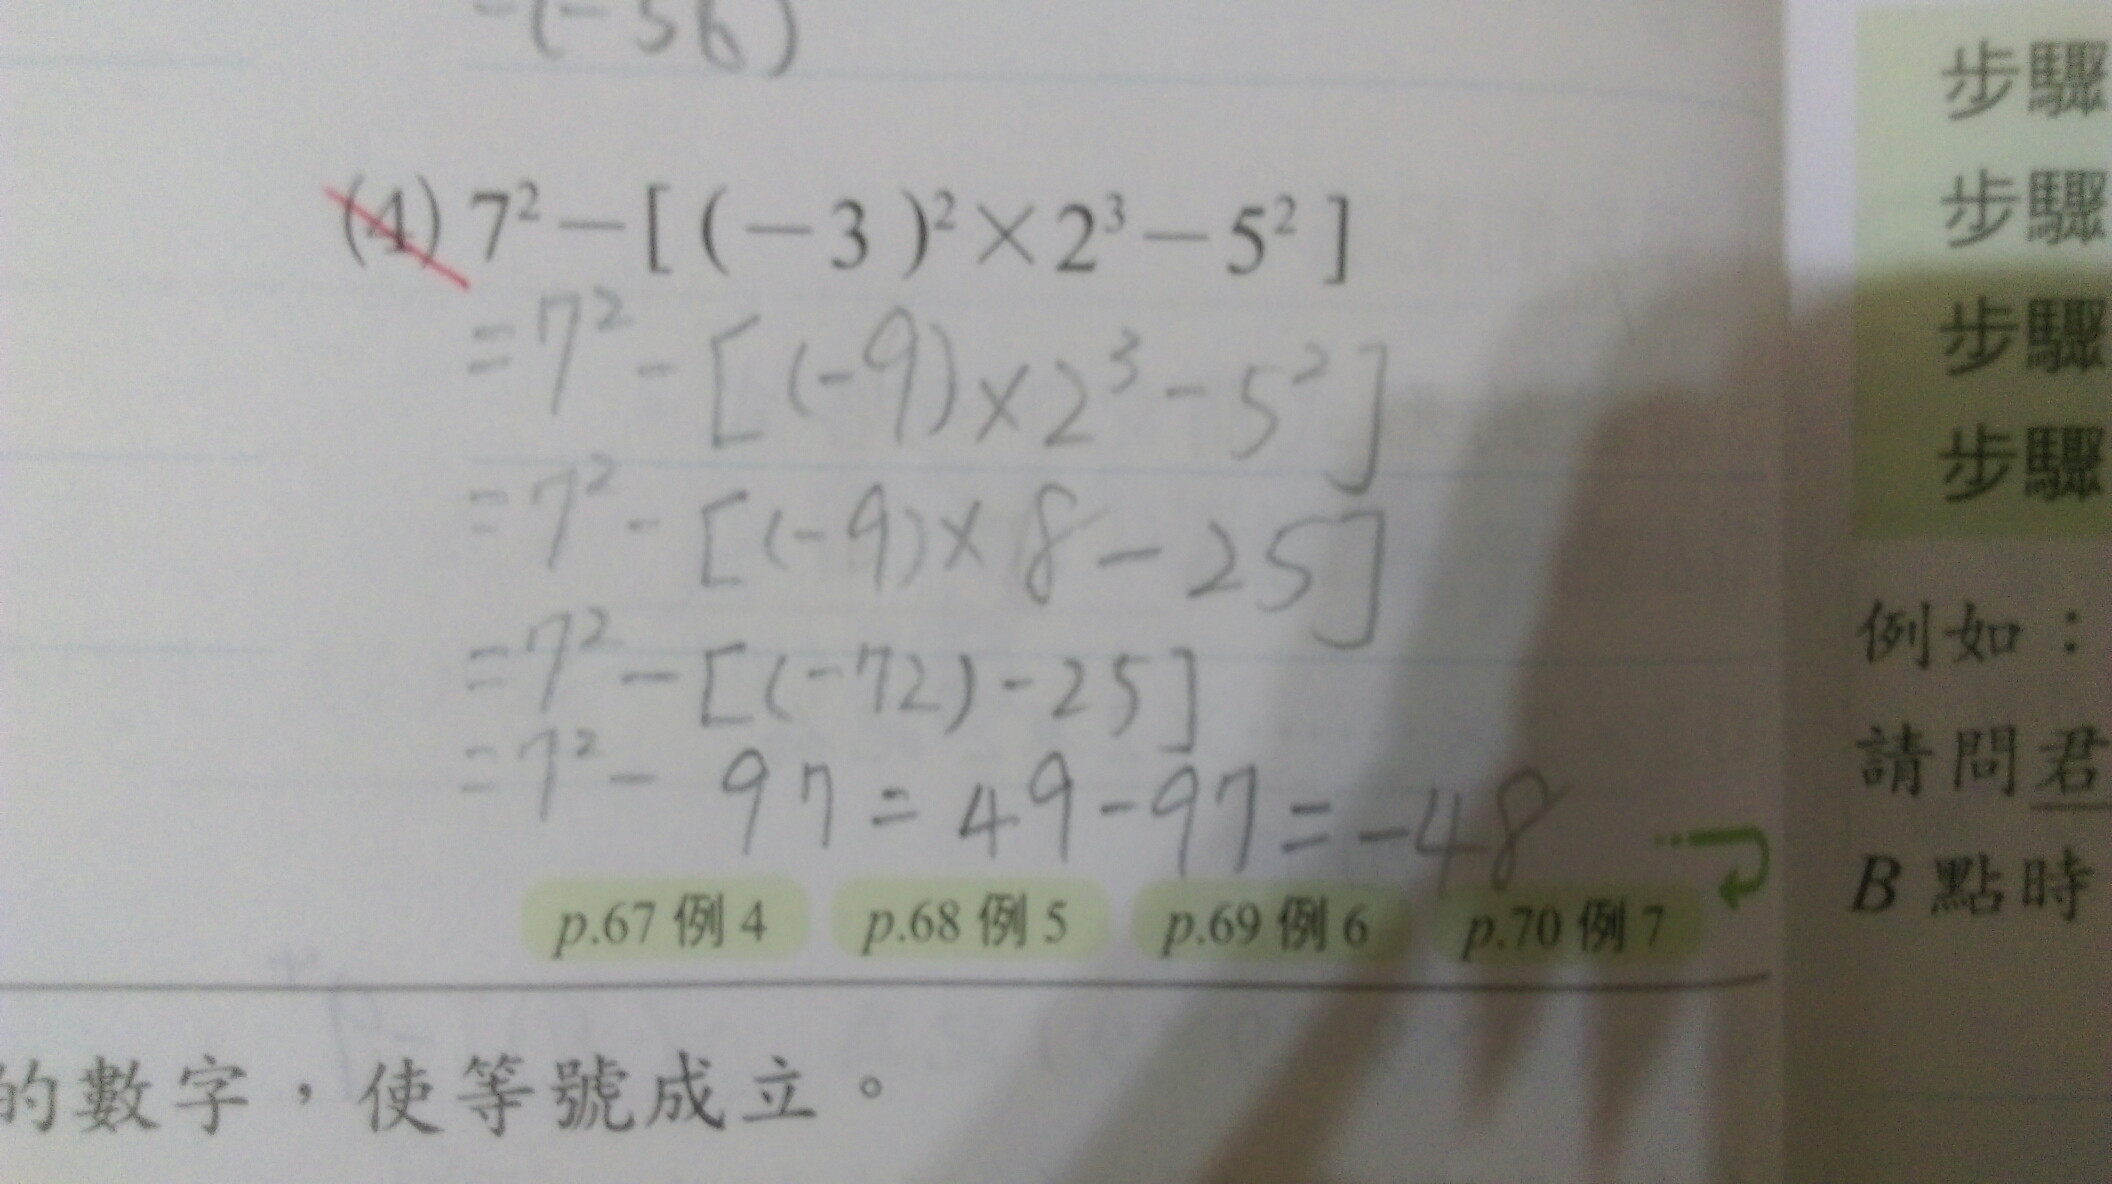 -(-56)
(4) 7²－[ (－3 )²×2³－5² ]
=7²-[(-9)×2³-5²]
=7²-[(-9)×8-25]
=7²-[(-72)-25]
=7²- 97=49-97=-48
p.67 例 4 p.68 例 5 p.69 例 6 p.70 例 7
的數字，使等號成立。
步驟
步驟
步驟
步驟
例如：
請問君
B 點時